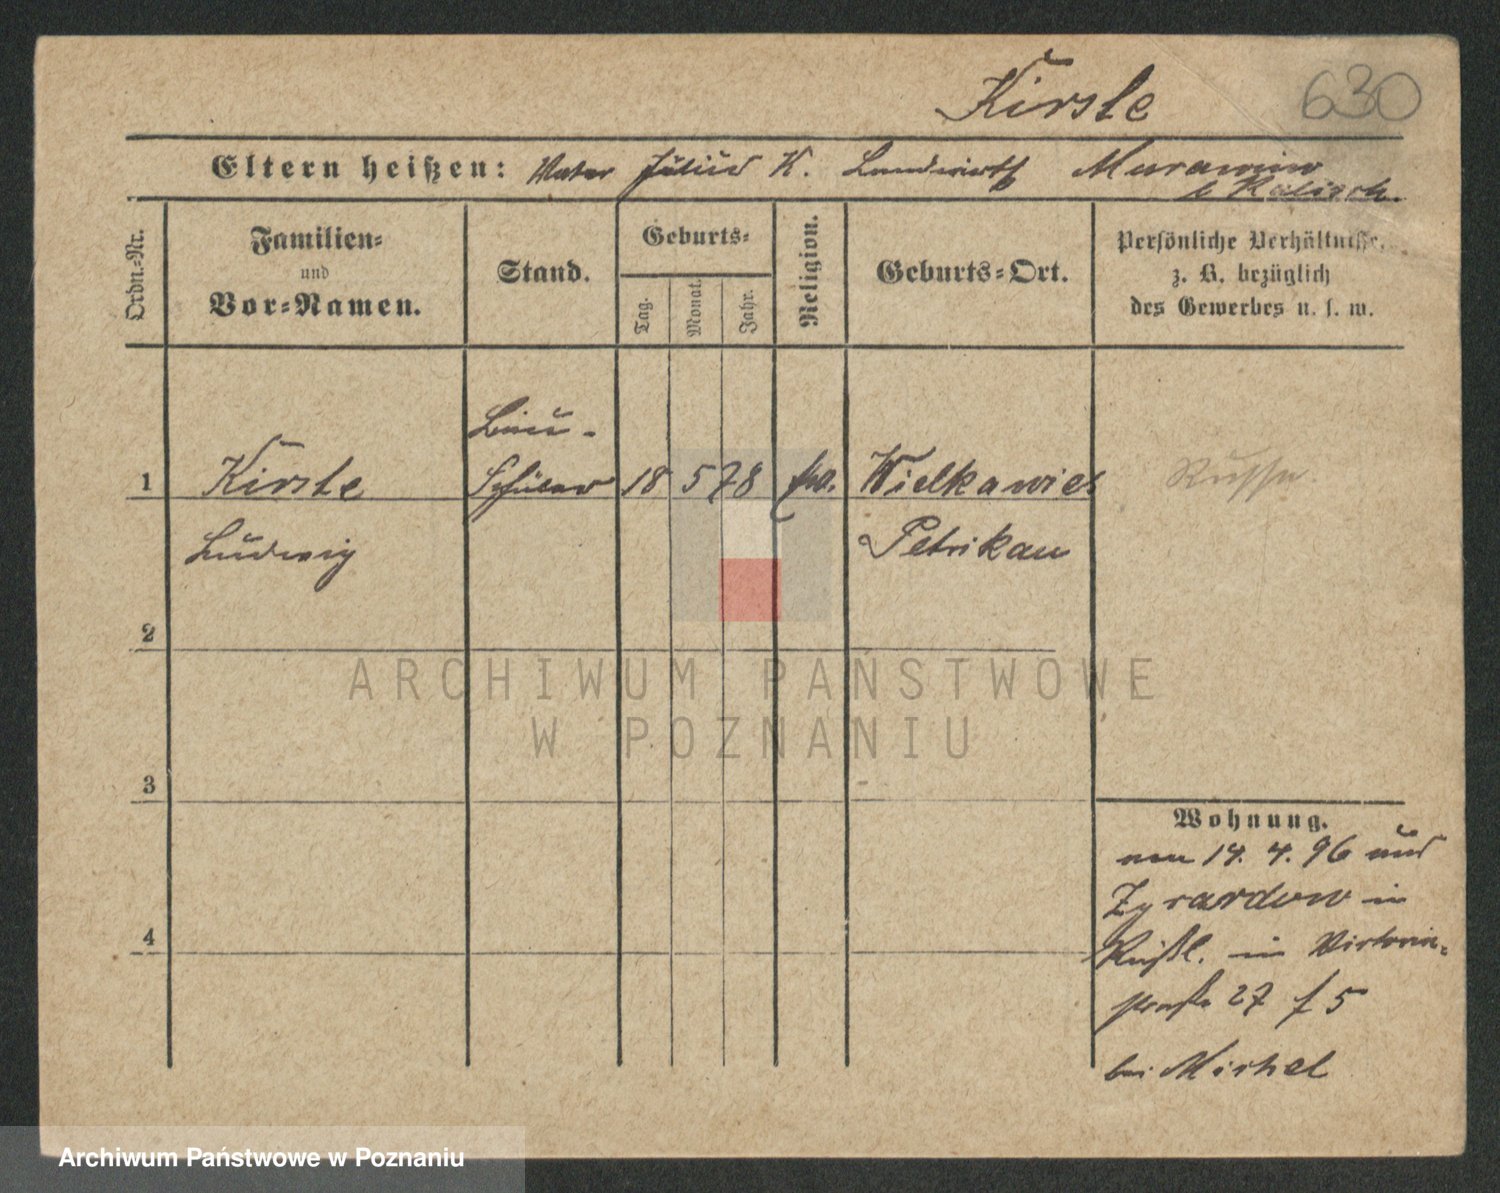 Kirste 630
Eltern heißen: Vater Julius K. Landwirth Murawin
b Kalisch.
Ordn.-Nr.
Familien-
und
Vor-Namen.
Stand.
Geburts-
Tag.
Monat.
Jahr.
Religion.
Geburts-Ort.
Persönliche Verhältnisse,
z. B. bezüglich
des Gewerbes u. s. w.
Bau-
1 Kirste Schüler 18 5 78 Wielkawies Russe.
Ludwig Petrikau
2
3
4
Wohnung.
von 14. 4. 96 aus
Zyrardow in
Rußl. in Victoria-
straße 27 f 5
bei Michel
ARCHIWUM PAŃSTWOWE
W POZNANIU
Archiwum Państwowe w Poznaniu